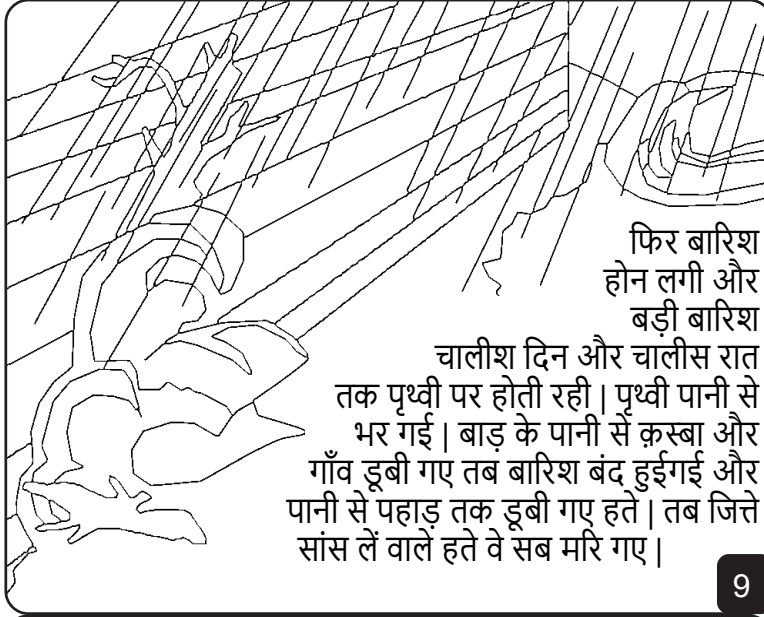 फिर बारिश
होन लगी और
बड़ी बारिश
चालीश दिन और चालीस रात
तक पृथ्वी पर होती रही | पृथ्वी पानी से
भर गई | बाड़ के पानी से क़स्बा और
गाँव डूबी गए तब बारिश बंद हुईगई और
पानी से पहाड़ तक डूबी गए हते | तब जित्ते
सांस लें वाले हते वे सब मरि गए |
9